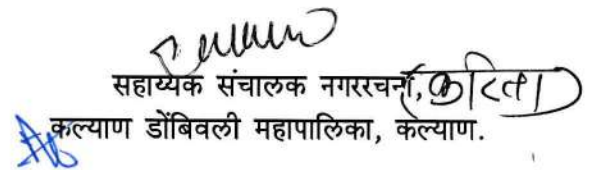 सहाय्यक संचालक नगररचना, करिता
कल्याण डोंबिवली महापालिका, कल्याण.